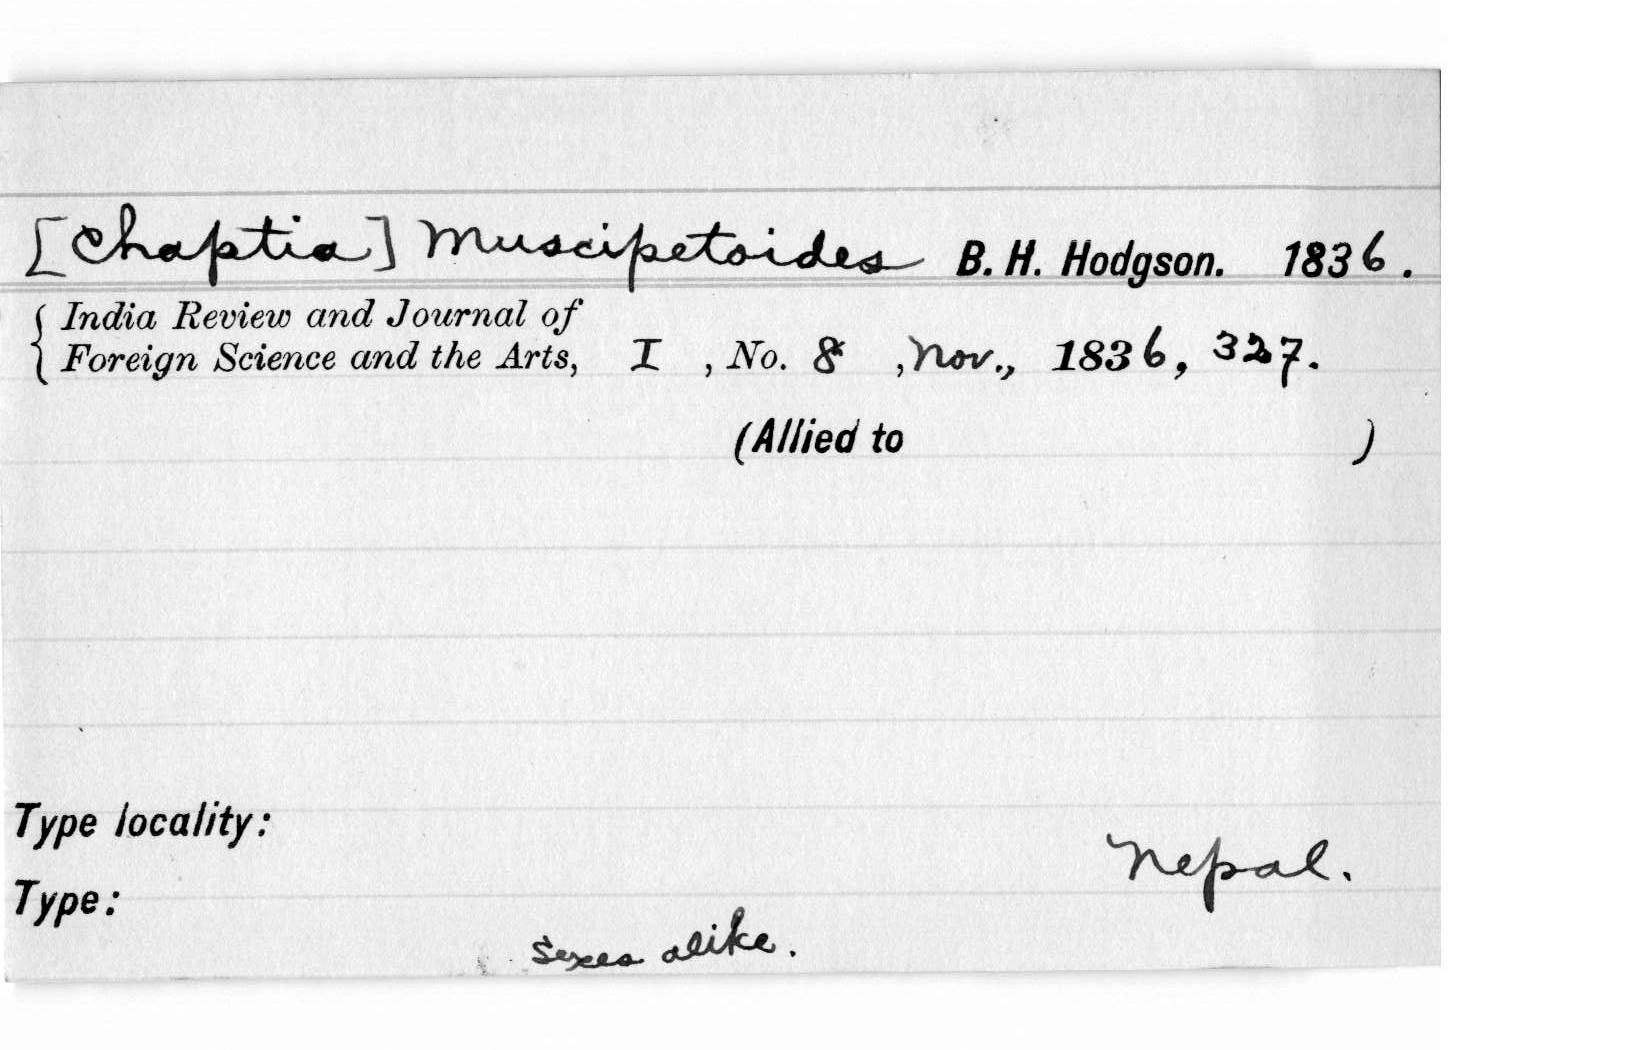 [Chaptia] Muscipetoides B. H. Hodgson. 1836.
{ India Review and Journal of
Foreign Science and the Arts, I , No. 8 , Nov., 1836, 327.
(Allied to )
Type locality:
Nepal.
Type:
Sexes alike.